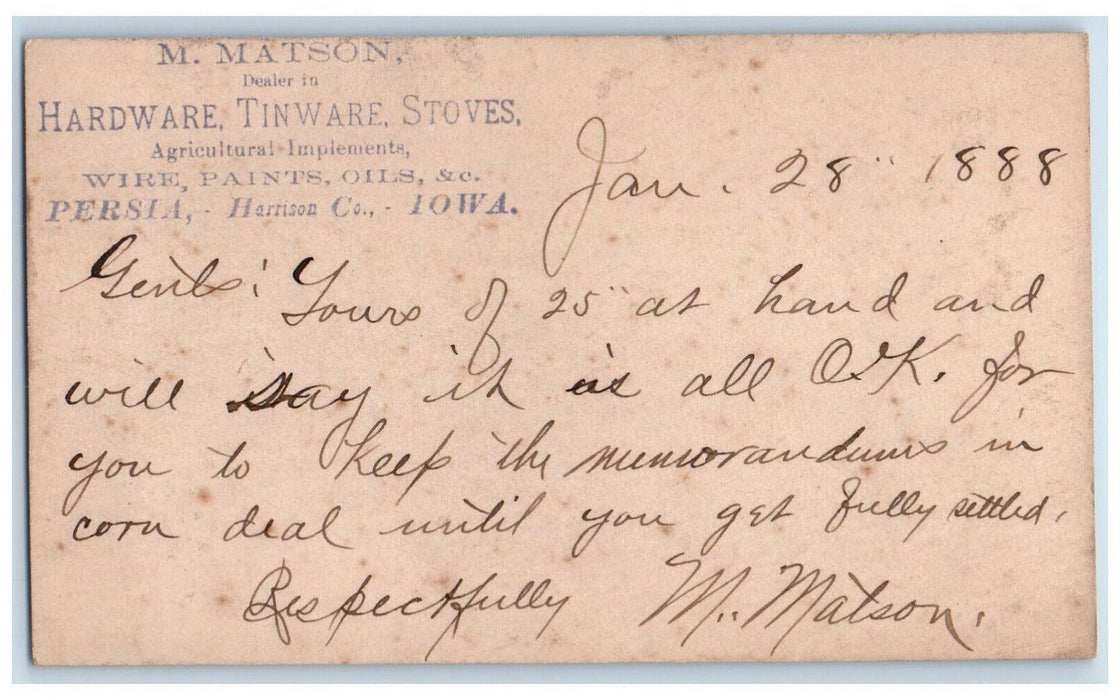 M. MATSON,
Dealer in
HARDWARE, TINWARE, STOVES,
Agricultural Implements,
WIRE, PAINTS, OILS, &c.
PERSIA, - Harrison Co., - IOWA.
Jan. 28" 1888
Gents! Yours of 25" at hand and
will say it is all O.K. for
you to keep the memorandums in
corn deal until you get fully settled.
Respectfully M. Matson.